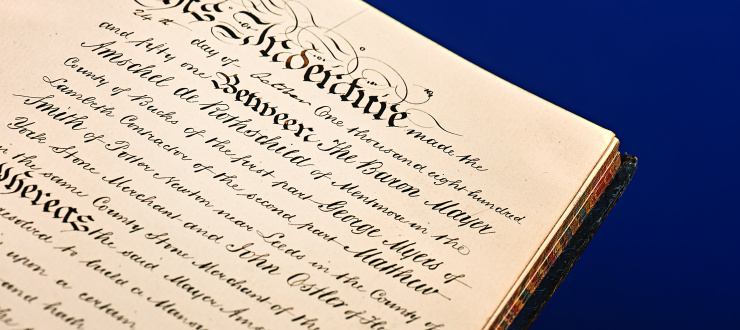 This Indenture made the
24th day of October One thousand eight hundred
and fifty one Between The Baron Mayer
Amschel de Rothschild of Mentmore in the
County of Bucks of the first part George Myers of
Lambeth Contractor of the second part Matthew
Smith of Potter Newton near Leeds in the County of
York Stone Merchant and John Ostler of
the same County Stone Merchant of the
Whereas the said Mayer
to build a
upon a certain
and